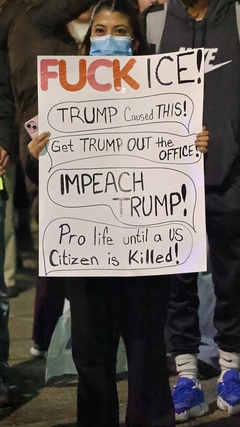 NIKE
FUCK ICE!
TRUMP Caused THIS!
Get TRUMP OUT the
OFFICE!
IMPEACH
TRUMP!
Pro life until a US
Citizen is Killed!